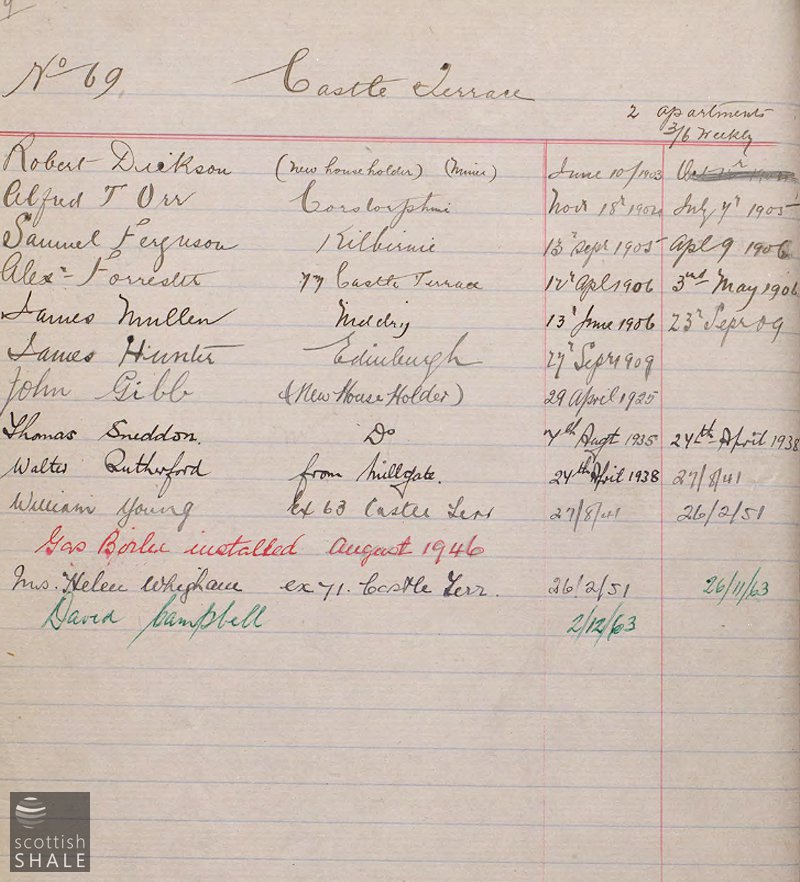 No 69. Castle Terrace
2 apartments
3/6 Weekly
Robert Dickson (New householder) (Miner) June 10/1903
Alfred T Orr Corstorphine Novr 18th 1904 July 7th 1905
Samuel Ferguson Kilbirnie 13th Sept 1905 Apl 9 1906
Alexr Forrester 77 Castle Terrace 12th Apl 1906 3rd May 1906
James Mullen 13th June 1906 23rd Sepr 09
James Hunter Edinburgh 27th Sepr 1909
John Gibb (New House Holder) 29 April 1925
Thomas Sneddon. Do 7th Augt 1935 24th April 1938
Walter Rutherford from Millgate. 24th April 1938 27/8/41
William Young ex 63 Castle Terr 27/8/41 26/2/51
Gas Boiler installed August 1946
Mrs. Helen Whigham ex 71. Castle Terr. 26/2/51 26/11/63
David Campbell 2/12/63
scottish
SHALE